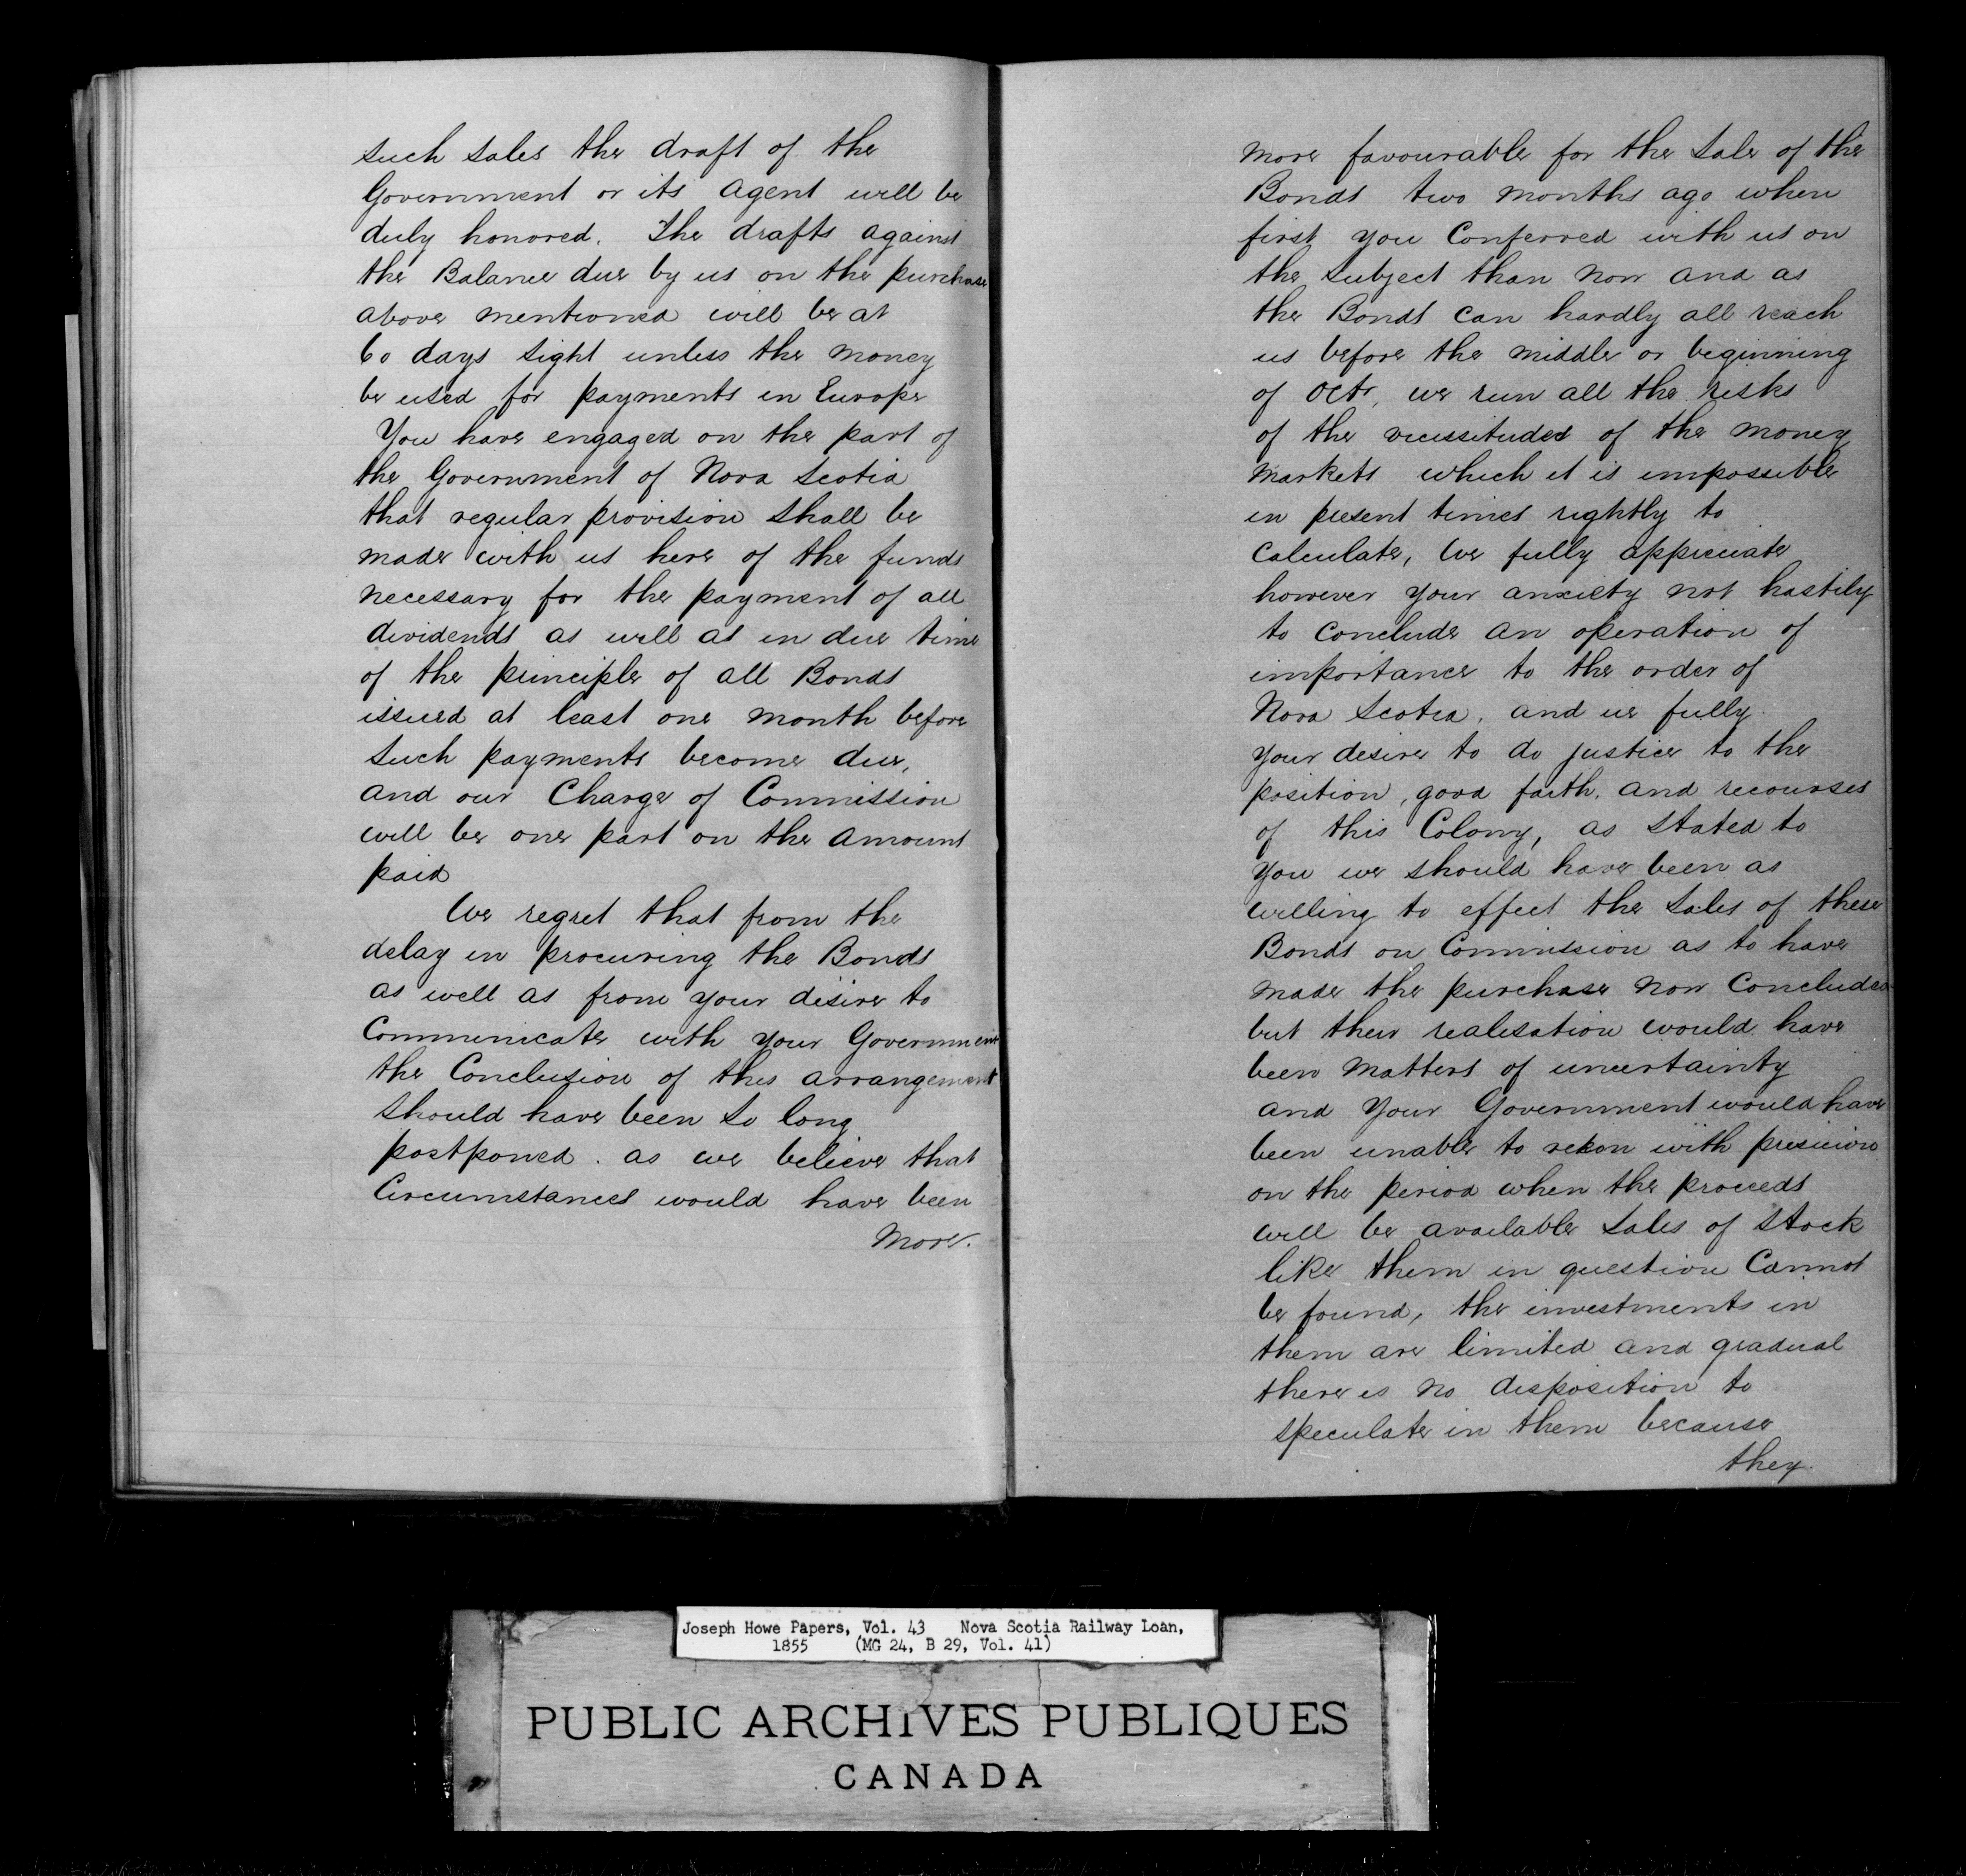 such sales the draft of the
Government or its agent will be
duly honored. The drafts against
the Balance due by us on the purchase
above mentioned will be at
60 days sight unless the money
be used for payments in Europe
You have engaged on the part of
the Government of Nova Scotia
that regular provision shall be
made with us here of the funds
necessary for the payment of all
dividends as well as in due time
of the principle of all Bonds
issued at least one month before
such payments become due,
and our Charge of Commission
will be one part on the amount
paid
We regret that from the
delay in procuring the Bonds
as well as from your desire to
Communicate with your Government
the Conclusion of this arrangement
should have been so long
postponed. as we believe that
Circumstances would have been
more.
more favourable for the sale of the
Bonds two months ago when
first you Conferred with us on
the subject than now and as
the Bonds can hardly all reach
us before the middle or beginning
of Octr, we run all the risks
of the vicissitudes of the money
markets which it is impossible
in present times rightly to
calculate, We fully appreciate
however your anxiety not hastily
to conclude an operation of
importance to the order of
Nova Scotia, and us fully
your desire to do justice to the
position, good faith, and recourses
of this Colony, as stated to
you we should have been as
willing to effect the sales of these
Bonds on Commission as to have
made the purchase now Concluded
but their realisation would have
been matters of uncertainty
and your Government would have
been unable to rekon with precision
on the period when the proceeds
will be available sales of stock
like them in question Cannot
be found, the investments in
them are limited and gradual
there is no disposition to
speculate in them because
they
Joseph Howe Papers, Vol. 43 Nova Scotia Railway Loan,
1855 (MG 24, B 29, Vol. 41)
PUBLIC ARCHIVES PUBLIQUES
CANADA